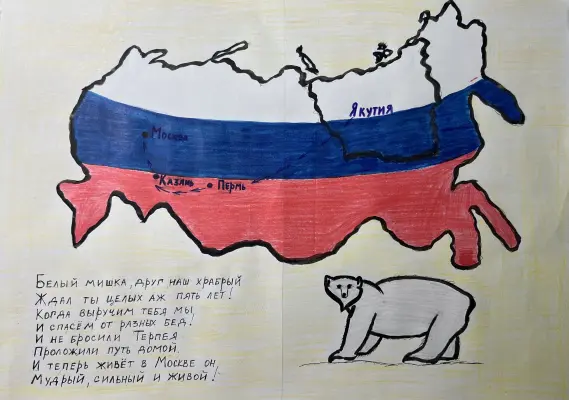 Якутия
Москва
Казань
Пермь
Белый мишка, друг наш храбрый
Ждал ты целых аж пять лет!
Когда выручим тебя мы,
И спасём от разных бед!
И не бросили Терпея
Проложили путь домой.
И теперь живёт в Москве он,
Мудрый, сильный и живой!